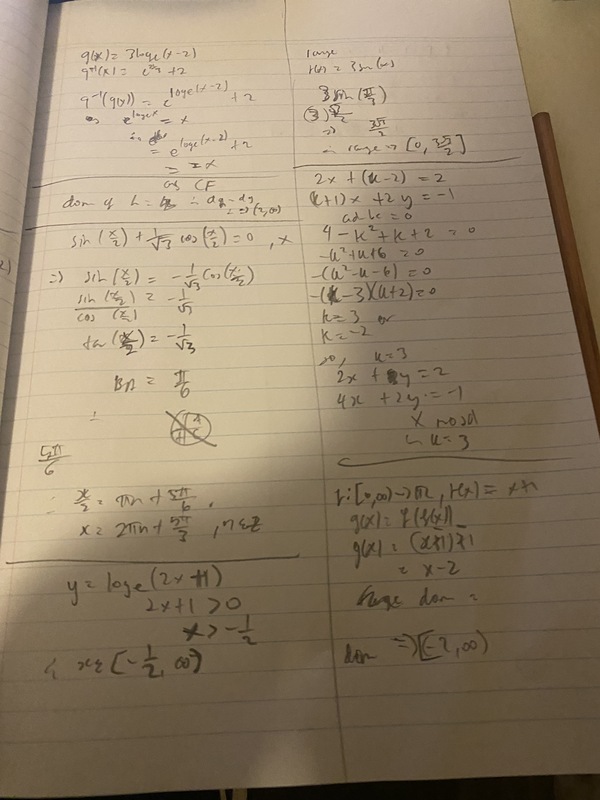 g(x) = 3loge(x-2)
g⁻¹(x) = e^(x/3) + 2
g⁻¹(g(x)) = e^(loge(x-2)) + 2
e^(logex) = x
= e^(loge(x-2)) + 2
= x
as CF
dom of h =
sin(x/2) + 1/√3 cos(x/2) = 0 , x
⇒ sin(x/2) = -1/√3 cos(x/2)
sin(x/2)/cos(x/2) = -1/√3
tan(x/2) = -1/√3
BA = π/6
∴
5π/6
∴ x/2 = πn + 5π/6
x = 2πn + 5π/3 , n∈Z
y = loge(2x+1)
2x+1 > 0
x > -1/2
x∈[-1/2, ∞)
range
f(x) = 3sin(x)
3sin(π/3)
⇒ 3π/2
∴ range ⇒ [0, 3π/2]
2x + (k-2) = 2
(k+1)x + 2y = -1
ad-bc = 0
4 - k² + k + 2 = 0
-k² + k + 6 = 0
-(k² - k - 6) = 0
-(k-3)(k+2) = 0
k = 3 or
k = -2
k = 3
2x + y = 2
4x + 2y = -1
x no sol
k = 3
f: [0,∞) → R, f(x) = x+1
g(x) = f(f(x))
g(x) = (x+1)+1
= x-2
dom =
dom ⇒ [-2, ∞)
2)